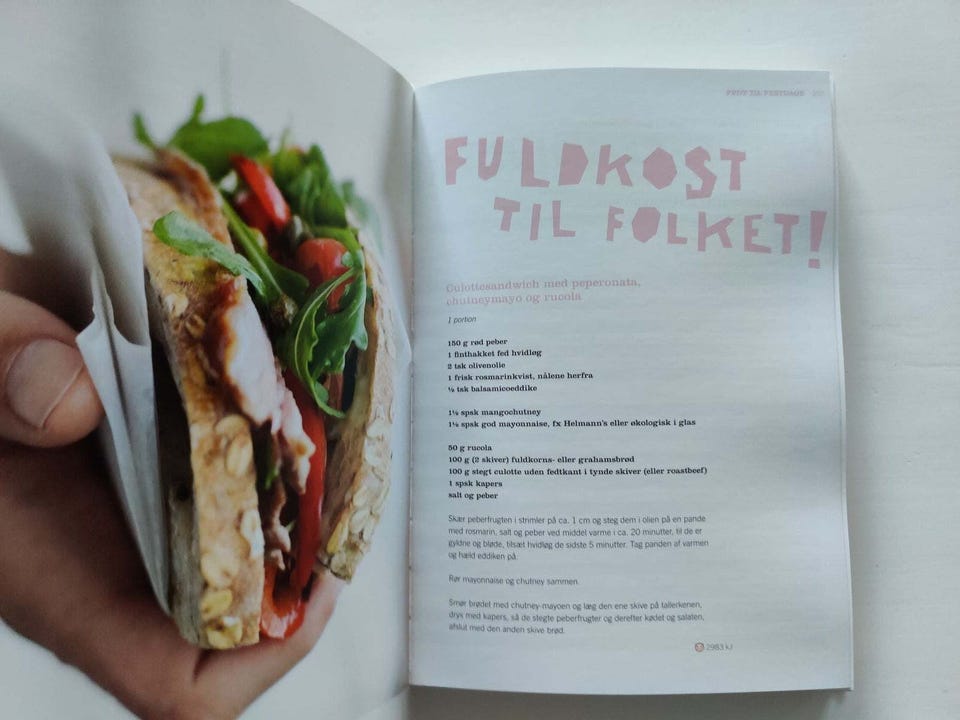 FRYD TIL FESTDAGE
FULDKOST
TIL FOLKET!
Culottesandwich med peperonata,
chutneymayo og rucola
1 portion
150 g rød peber
1 finthakket fed hvidløg
2 tsk olivenolie
1 frisk rosmarinkvist, nålene herfra
½ tsk balsamicoeddike
1½ spsk mangochutney
1½ spsk god mayonnaise, fx Helmann's eller økologisk i glas
50 g rucola
100 g (2 skiver) fuldkorns- eller grahamsbrød
100 g stegt culotte uden fedtkant i tynde skiver (eller roastbeef)
1 spsk kapers
salt og peber
Skær peberfrugten i strimler på ca. 1 cm og steg dem i olien på en pande
med rosmarin, salt og peber ved middel varme i ca. 20 minutter, til de er
gyldne og bløde, tilsæt hvidløg de sidste 5 minutter. Tag panden af varmen
og hæld eddiken på.
Rør mayonnaise og chutney sammen.
Smør brødet med chutney-mayoen og læg den ene skive på tallerkenen,
drys med kapers, så de stegte peberfrugter og derefter kødet og salaten,
afslut med den anden skive brød.
2983 kJ